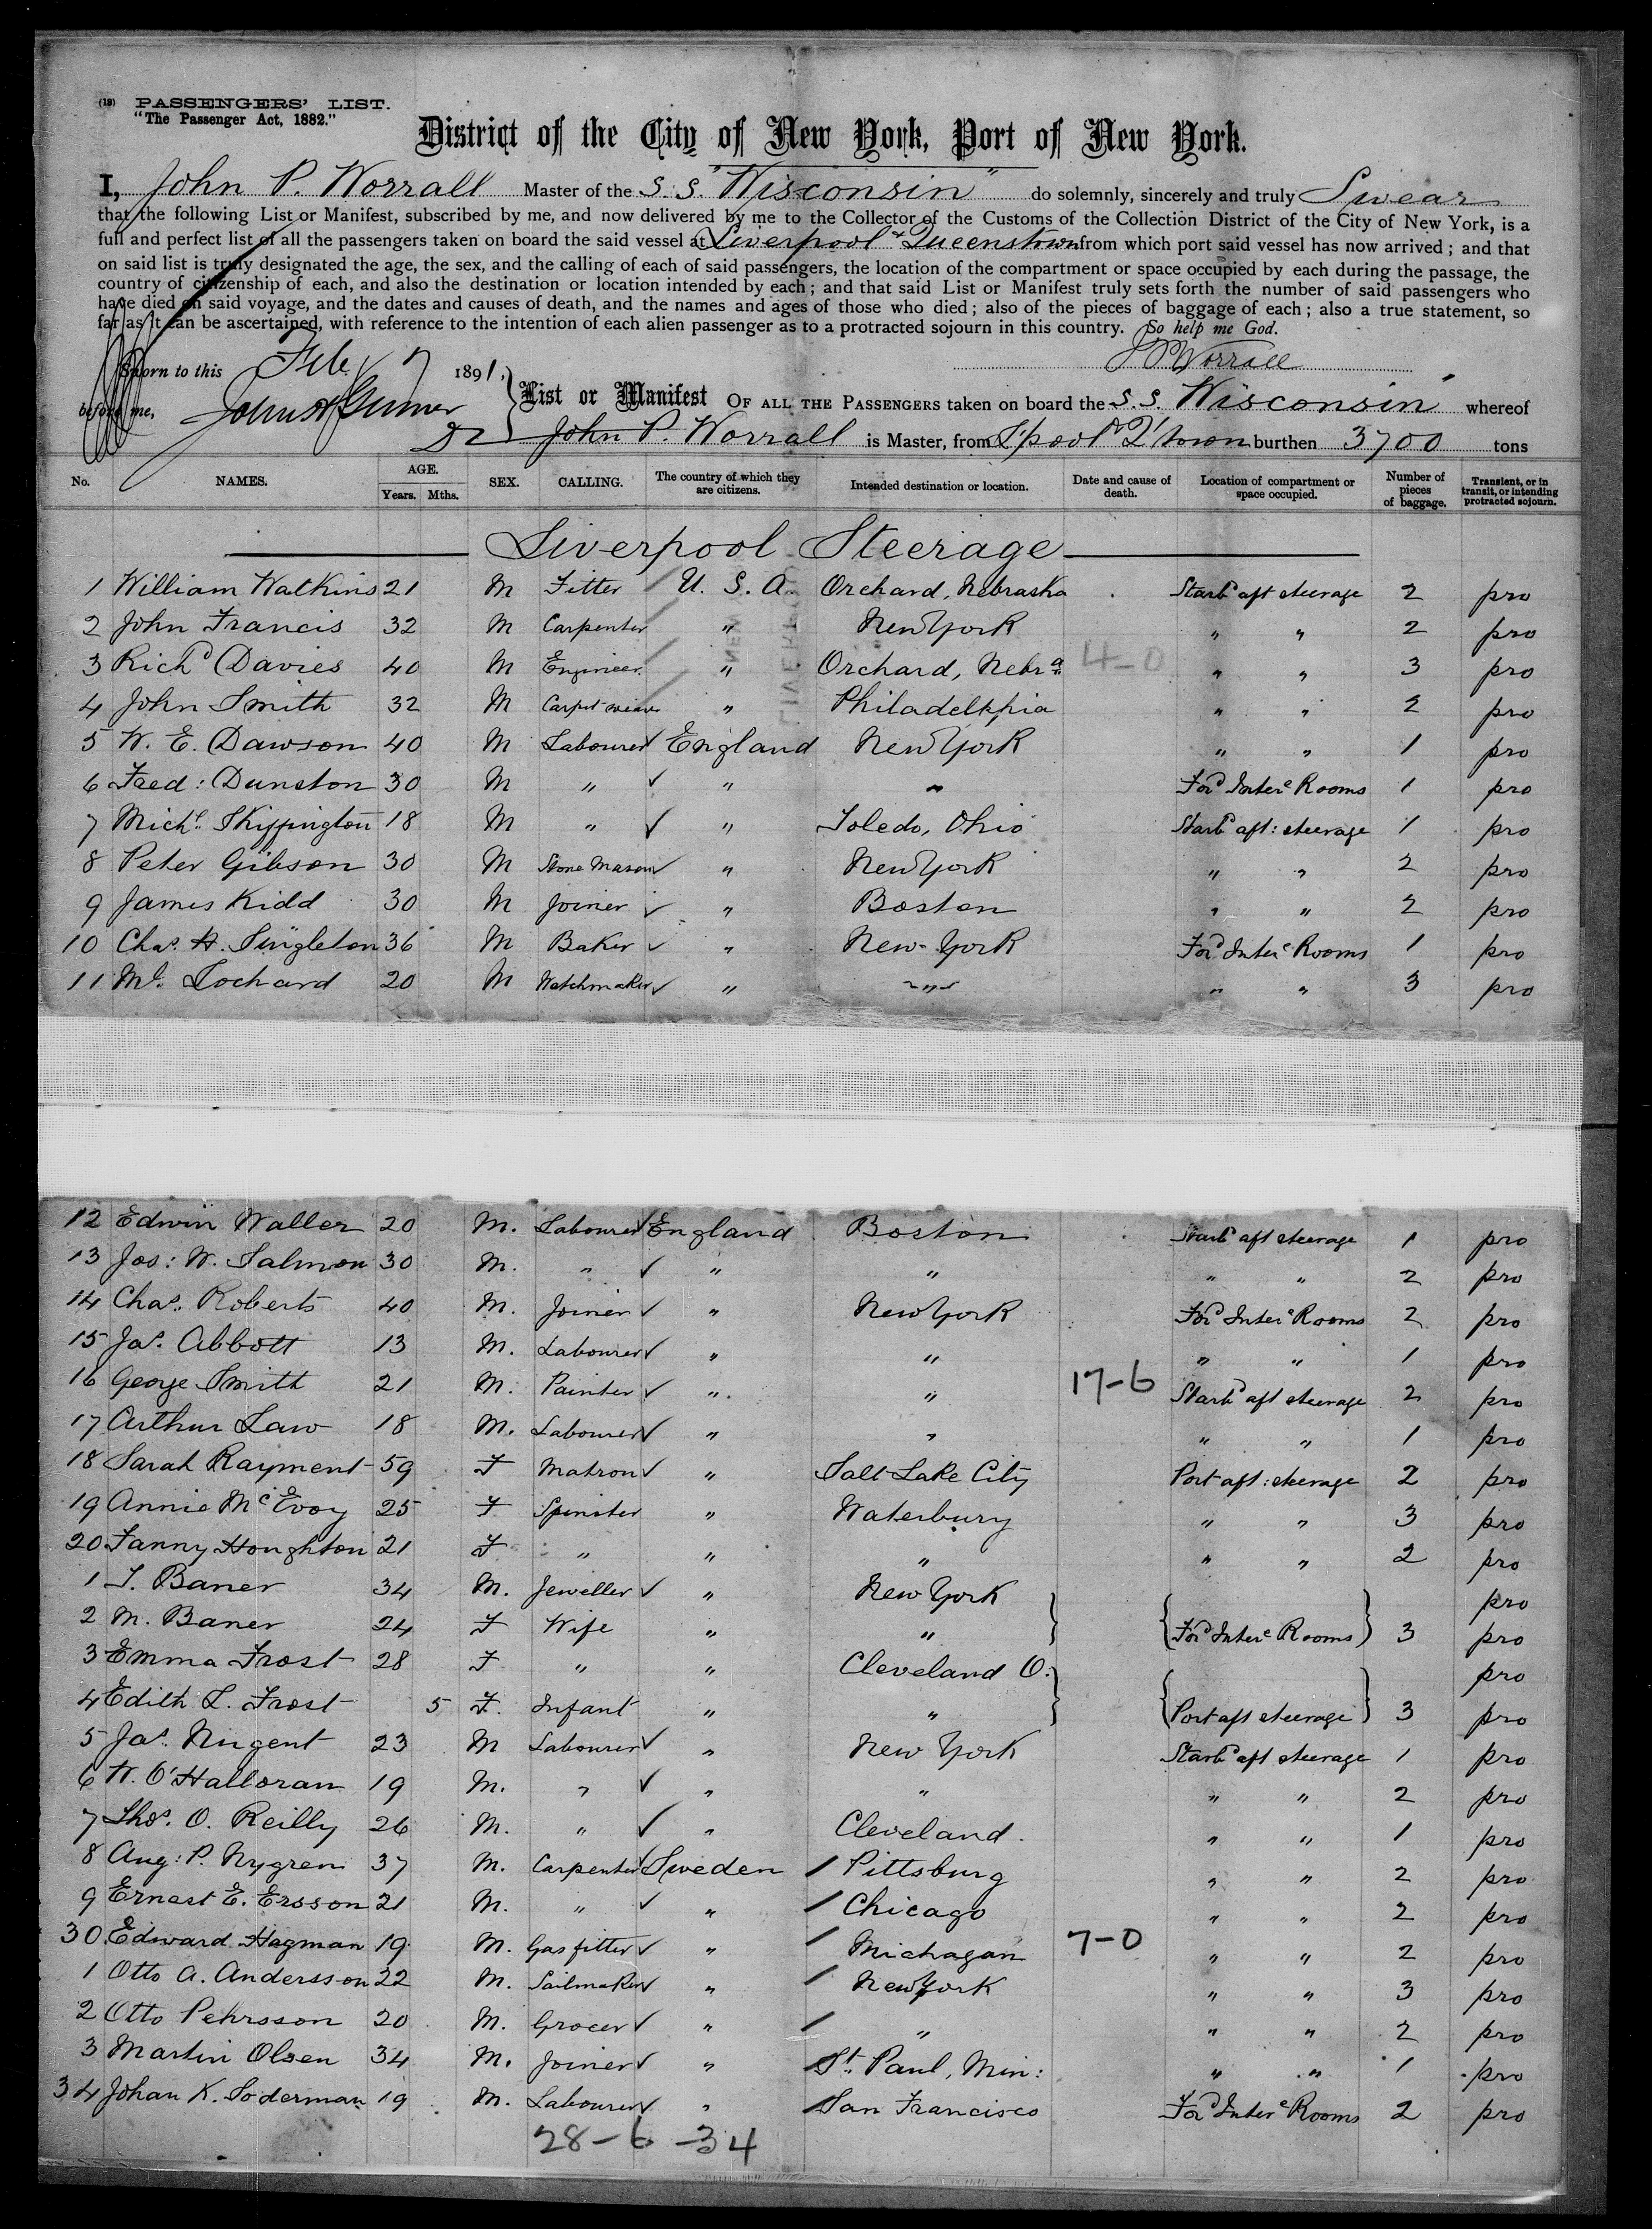 (18) PASSENGERS' LIST.
"The Passenger Act, 1882."
District of the City of New York, Port of New York.
I, John P. Worrall Master of the S. S. "Wisconsin" do solemnly, sincerely and truly Swear
that the following List or Manifest, subscribed by me, and now delivered by me to the Collector of the Customs of the Collection District of the City of New York, is a
full and perfect list of all the passengers taken on board the said vessel at Liverpool & Queenstown from which port said vessel has now arrived; and that
on said list is truly designated the age, the sex, and the calling of each of said passengers, the location of the compartment or space occupied by each during the passage, the
country of citizenship of each, and also the destination or location intended by each; and that said List or Manifest truly sets forth the number of said passengers who
have died on said voyage, and the dates and causes of death, and the names and ages of those who died; also of the pieces of baggage of each; also a true statement, so
far as it can be ascertained, with reference to the intention of each alien passenger as to a protracted sojourn in this country. So help me God.
Sworn to this Feb 7 1891, J P Worrall
before me, List or Manifest OF ALL THE PASSENGERS taken on board the S. S. Wisconsin" whereof
John P. Worrall is Master, from L'pool & Q'town burthen 3700 tons
No. NAMES. AGE. Years. Mths. SEX. CALLING. The country of which they are citizens. Intended destination or location. Date and cause of death. Location of compartment or space occupied. Number of pieces of baggage. Transient, or in transit, or intending protracted sojourn.
Liverpool Steerage
1 William Watkins 21 M Fitter U. S. A. Orchard, Nebraska Starbd aft steerage 2 pro
2 John Francis 32 M Carpenter " New York " " 2 pro
3 Richd Davies 40 M Engineer " Orchard, Nebra 4-0 " " 3 pro
4 John Smith 32 M Carpet weaver " Philadelphia " " 2 pro
5 W. E. Dawson 40 M Labourer ✓ England New York " " 1 pro
6 Fred: Dunston 30 M " ✓ " " Ford Inter Rooms 1 pro
7 Michl Skiffington 18 M " ✓ " Toledo, Ohio Starbd aft: steerage 1 pro
8 Peter Gibson 30 M Stone Mason ✓ " New York " " 2 pro
9 James Kidd 30 M Joiner ✓ " Boston " " 2 pro
10 Chas. H. Singleton 36 M Baker ✓ " New-York Ford Inter Rooms 1 pro
11 Ml. Lochard 20 M Watchmaker ✓ " " " " 3 pro
12 Edwin Waller 20 M. Labourer ✓ England Boston Starbd aft steerage 1 pro
13 Jos: W. Salmon 30 M. " ✓ " " " " 2 pro
14 Chas. Roberts 40 M. Joiner ✓ " New York Ford Inter Rooms 2 pro
15 Jas. Abbott 13 M. Labourer ✓ " " " " 1 pro
16 George Smith 21 M. Painter ✓ " " 17-6 Starbd aft steerage 2 pro
17 Arthur Law 18 M. Labourer ✓ " " " " 1 pro
18 Sarah Rayment 59 F Matron ✓ " Salt Lake City Port aft: steerage 2 pro
19 Annie McEvoy 25 F Spinster " Waterbury " " 3 pro
20 Fanny Houghton 21 F " " " " " 2 pro
1 T. Baner 34 M. Jeweller ✓ " New York pro
2 M. Baner 24 F Wife " " Ford Inter Rooms 3 pro
3 Emma Frost 28 F " " Cleveland O. pro
4 Edith L. Frost 5 F. Infant " " Port aft steerage 3 pro
5 Jas. Nugent 23 M Labourer ✓ " New York Starbd aft steerage 1 pro
6 W. O'Halloran 19 M. " ✓ " " " " 2 pro
7 Thos. O. Reilly 26 M. " ✓ " Cleveland. " " 1 pro
8 Aug: P. Nygren 37 M. Carpenter ✓ Sweden / Pittsburg " " 2 pro
9 Ernest E. Ersson 21 M. " ✓ " / Chicago " " 2 pro
30 Edward Hagman 19 M. Gasfitter ✓ " / Michagan 7-0 " " 2 pro
1 Otto A. Andersson 22 M. Sailmaker ✓ " / New York " " 3 pro
2 Otto Pehrsson 20 M. Grocer ✓ " / " " " 2 pro
3 Martin Olsen 34 M. Joiner ✓ " St. Paul, Min: " " 1 pro
34 Johan K. Soderman 19 M. Labourer ✓ " San Francisco Ford Inter Rooms 2 pro
28-6-34